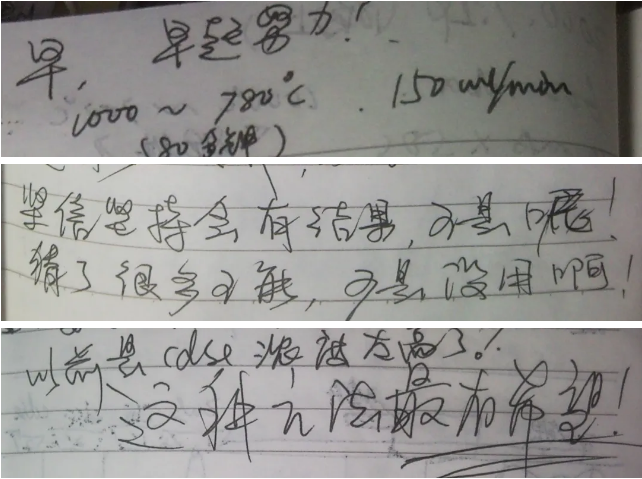 早, 早起努力!
1000~780℃. 150 ml/min
(80分钟)
坚信坚持会有结果,可是呢!
猜了很多可能,可是没用啊!
以前是CdSe浓度太高了。!
这种方法最有希望!